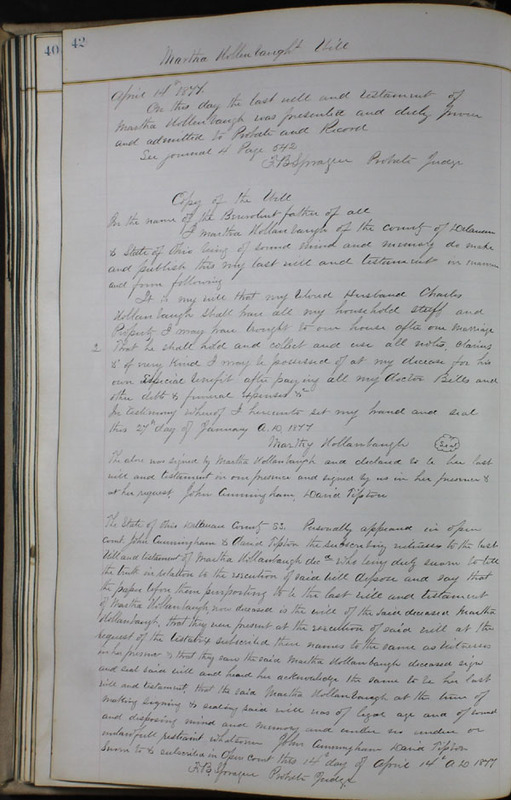 40 42
Martha Hollenbaugh's Will
April 14th 1877.
On this day the last will and testament of
Martha Hollenbaugh was presented and duly proven
and admitted to Probate and Record
See journal 4 Page 542
F.B. Sprague Probate Judge
Copy of the Will
In the name of the Benevolent father of all
I Martha Hollanbaugh of the county of Delaware
& State of Ohio being of sound mind and memory do make
and publish this my last will and testament in manner
and form following
It is my will that my Beloved Husband Charles
Hollenbaugh shall have all my household stuff and
Property I may have brought to our house after our marriage
2 That he shall hold and collect and use all notes, claims
&c of every Kind I may be possessed of at my decease for his
own Especial benefit after paying all my doctor Bills and
other debts & funeral expenses &c
In testimony whereof I hereunto set my hand and seal
this 27th day of January A.D. 1877
Marthy Hollanbaugh Seal
The above was signed by Martha Hollenbaugh and declared to be her last
will and testament in our presence and signed by us in her presence &
at her request. John Cunningham, David Tipton
The State of Ohio Delaware County SS. Personally appeared in open
court John Cunningham & David Tipton the subscribing witnesses to the last
Will and testament of Martha Hollanbaugh decd who being duly sworn to tell
the truth in relation to the execution of said will depose and say that
the paper before them purporting to be the last will and testament
of Martha Hollanbaugh now deceased is the will of the said deceased Martha
Hollanbaugh, that they were present at the execution of said will at the
request of the testatrix subscribed their names to the same as witnesses
in her presence & that they saw the said Martha Hollanbaugh deceased sign
and seal said will and heard her acknowledge the same to be her last
will and testament, that the said Martha Hollanbaugh at the time of
making signing & sealing said will was of legal age and of sound
and disposing mind and memory and under no undue or
unlawfull restraint whatsoever John Cunningham David Tipton
Sworn to & subscribed in Open Court this 14th day of April 14th A.D. 1877
F.B. Sprague Probate Judge